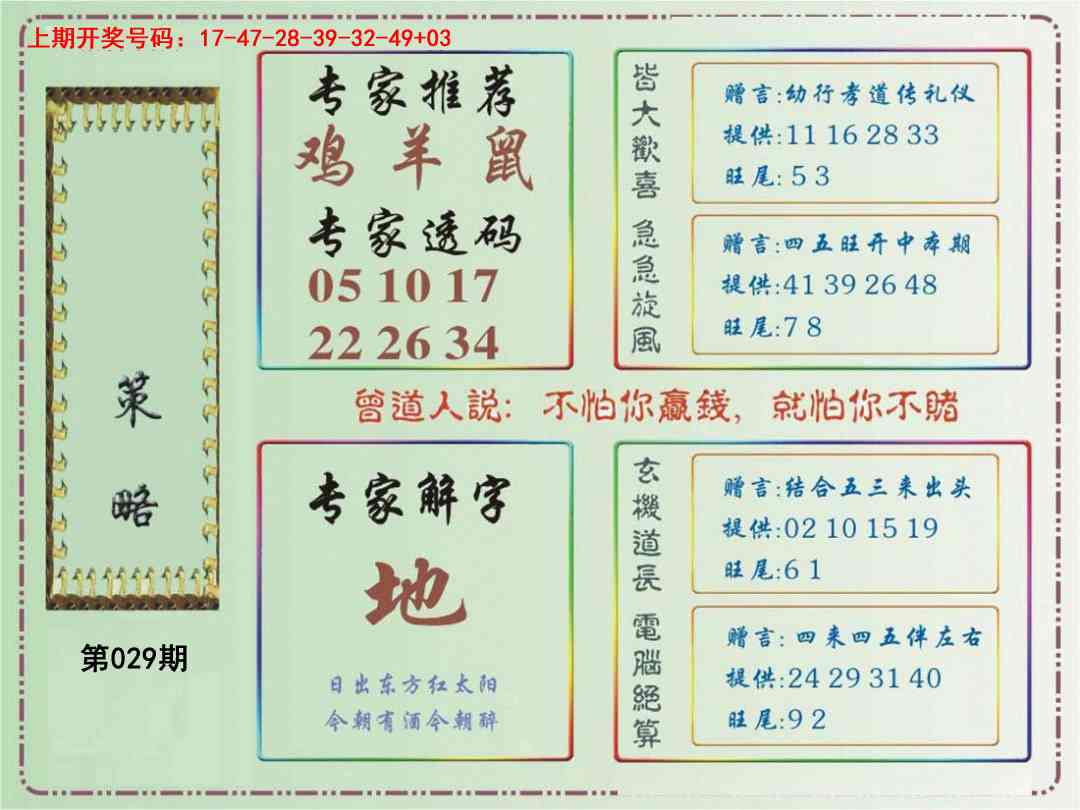 上期开奖号码：17-47-28-39-32-49+03
策略
第029期
专家推荐
鸡 羊 鼠
专家透码
05 10 17
22 26 34
皆大歡喜
赠言:幼行孝道传礼仪
提供:11 16 28 33
旺尾: 5 3
急急旋風
赠言:四五旺开中本期
提供:41 39 26 48
旺尾:7 8
曾道人説: 不怕你赢錢, 就怕你不賭
专家解字
地
日出东方红太阳
今朝有酒今朝醉
玄機道長
赠言:结合五三来出头
提供:02 10 15 19
旺尾:6 1
電腦絕算
赠言: 四来四五伴左右
提供:24 29 31 40
旺尾:9 2